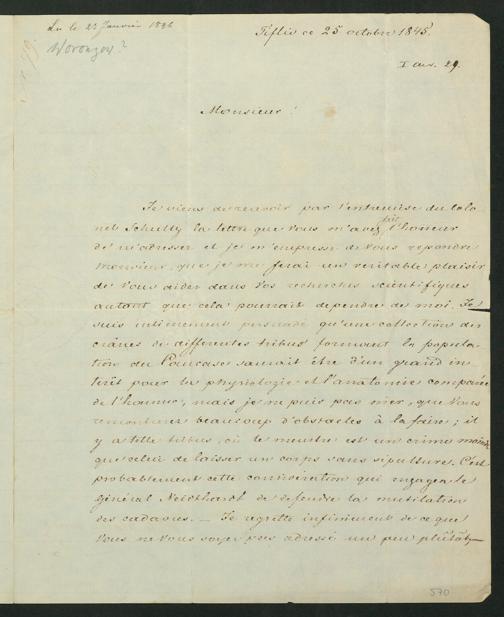 Lu le 23 Janvier 1846
Woronzow?
Tiflis ce 25 octobre 1845.
29.
Monsieur!
Je viens de recevoir par l'entremise du Colo-
nel Schultz la lettre que vous m'avez fait l'honneur
de m'adresser et je m'empresse de vous repondre
Monsieur, que je me ferai un veritable plaisir
de vous aider dans vos recherches scientifiques
autant que cela pourrait dependre de moi. Je
suis intimement persuadé qu'une collection des
crânes de differentes tribus formant la popula-
tion du Caucase saurait être d'un grand in-
terêt pour la physiologie et l'anatomie comparée
de l'homme, mais je ne puis pas nier, que vous
rencontrerez beaucoup d'obstacles à la faire; il
y a telle tribus, où le meurtre est un crime moindre
que celui de laisser un corps sans sipulture. C'est
probablement cette consideration qui engagea le
général Neidthardt de defendre la mutilation
des cadavres. — Je regrette infiniment de ce que
vous ne vous soyez pas adressé un peu plûtôt
570